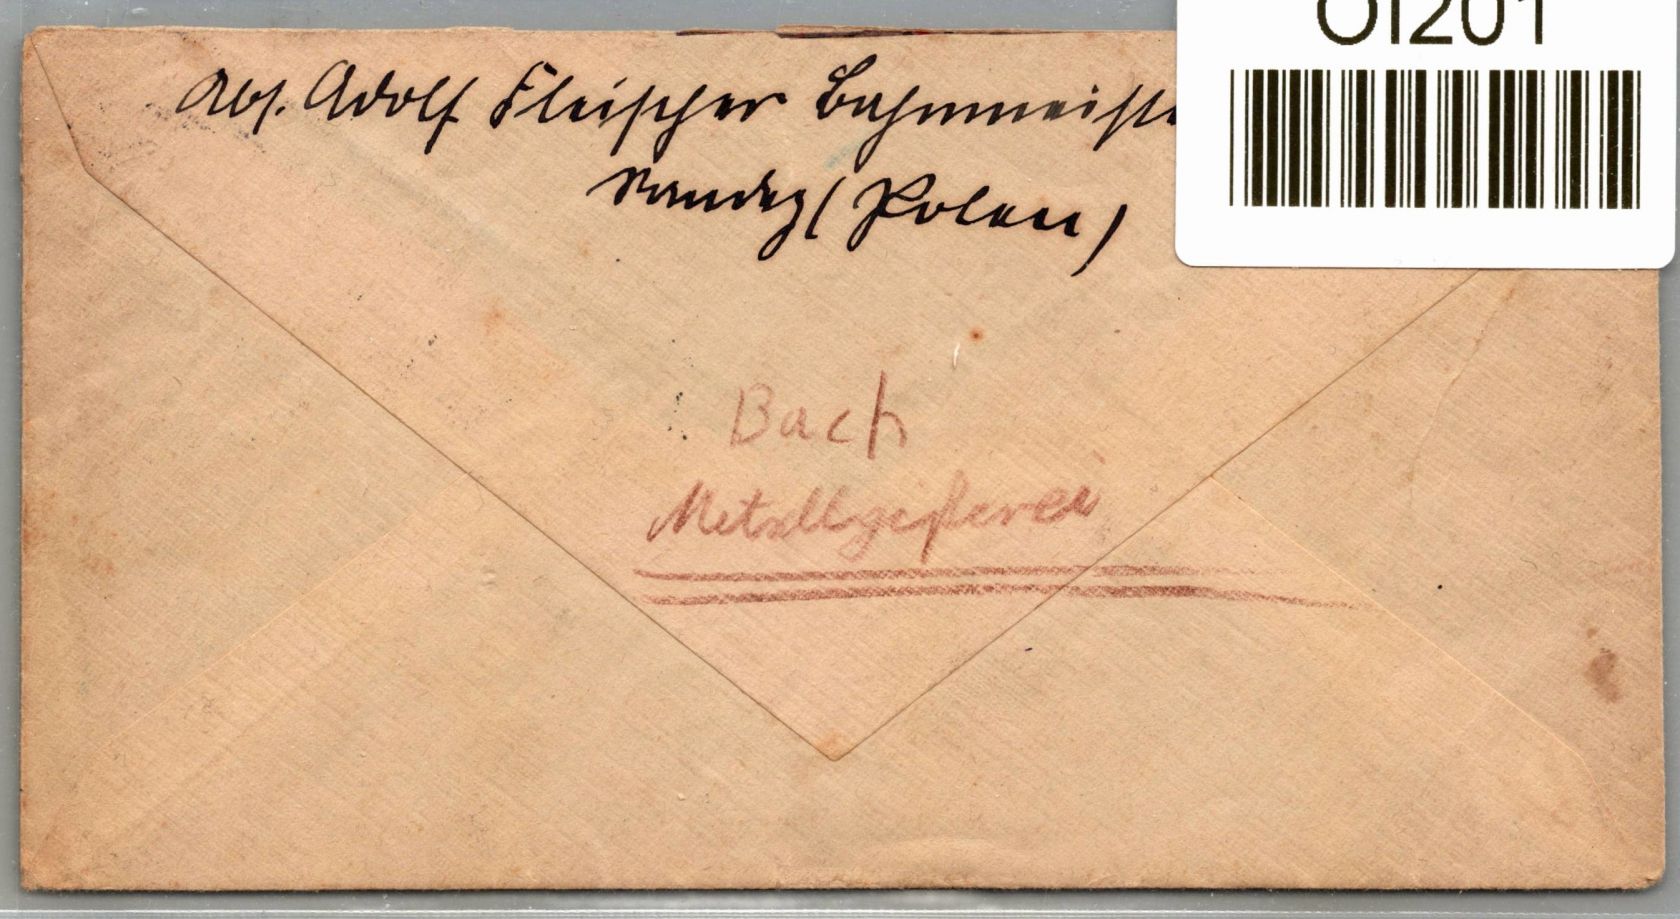 OI201
Abs. Adolf Fleischer Bahnmeiste
(Polen)
Bach
Metallgießerei